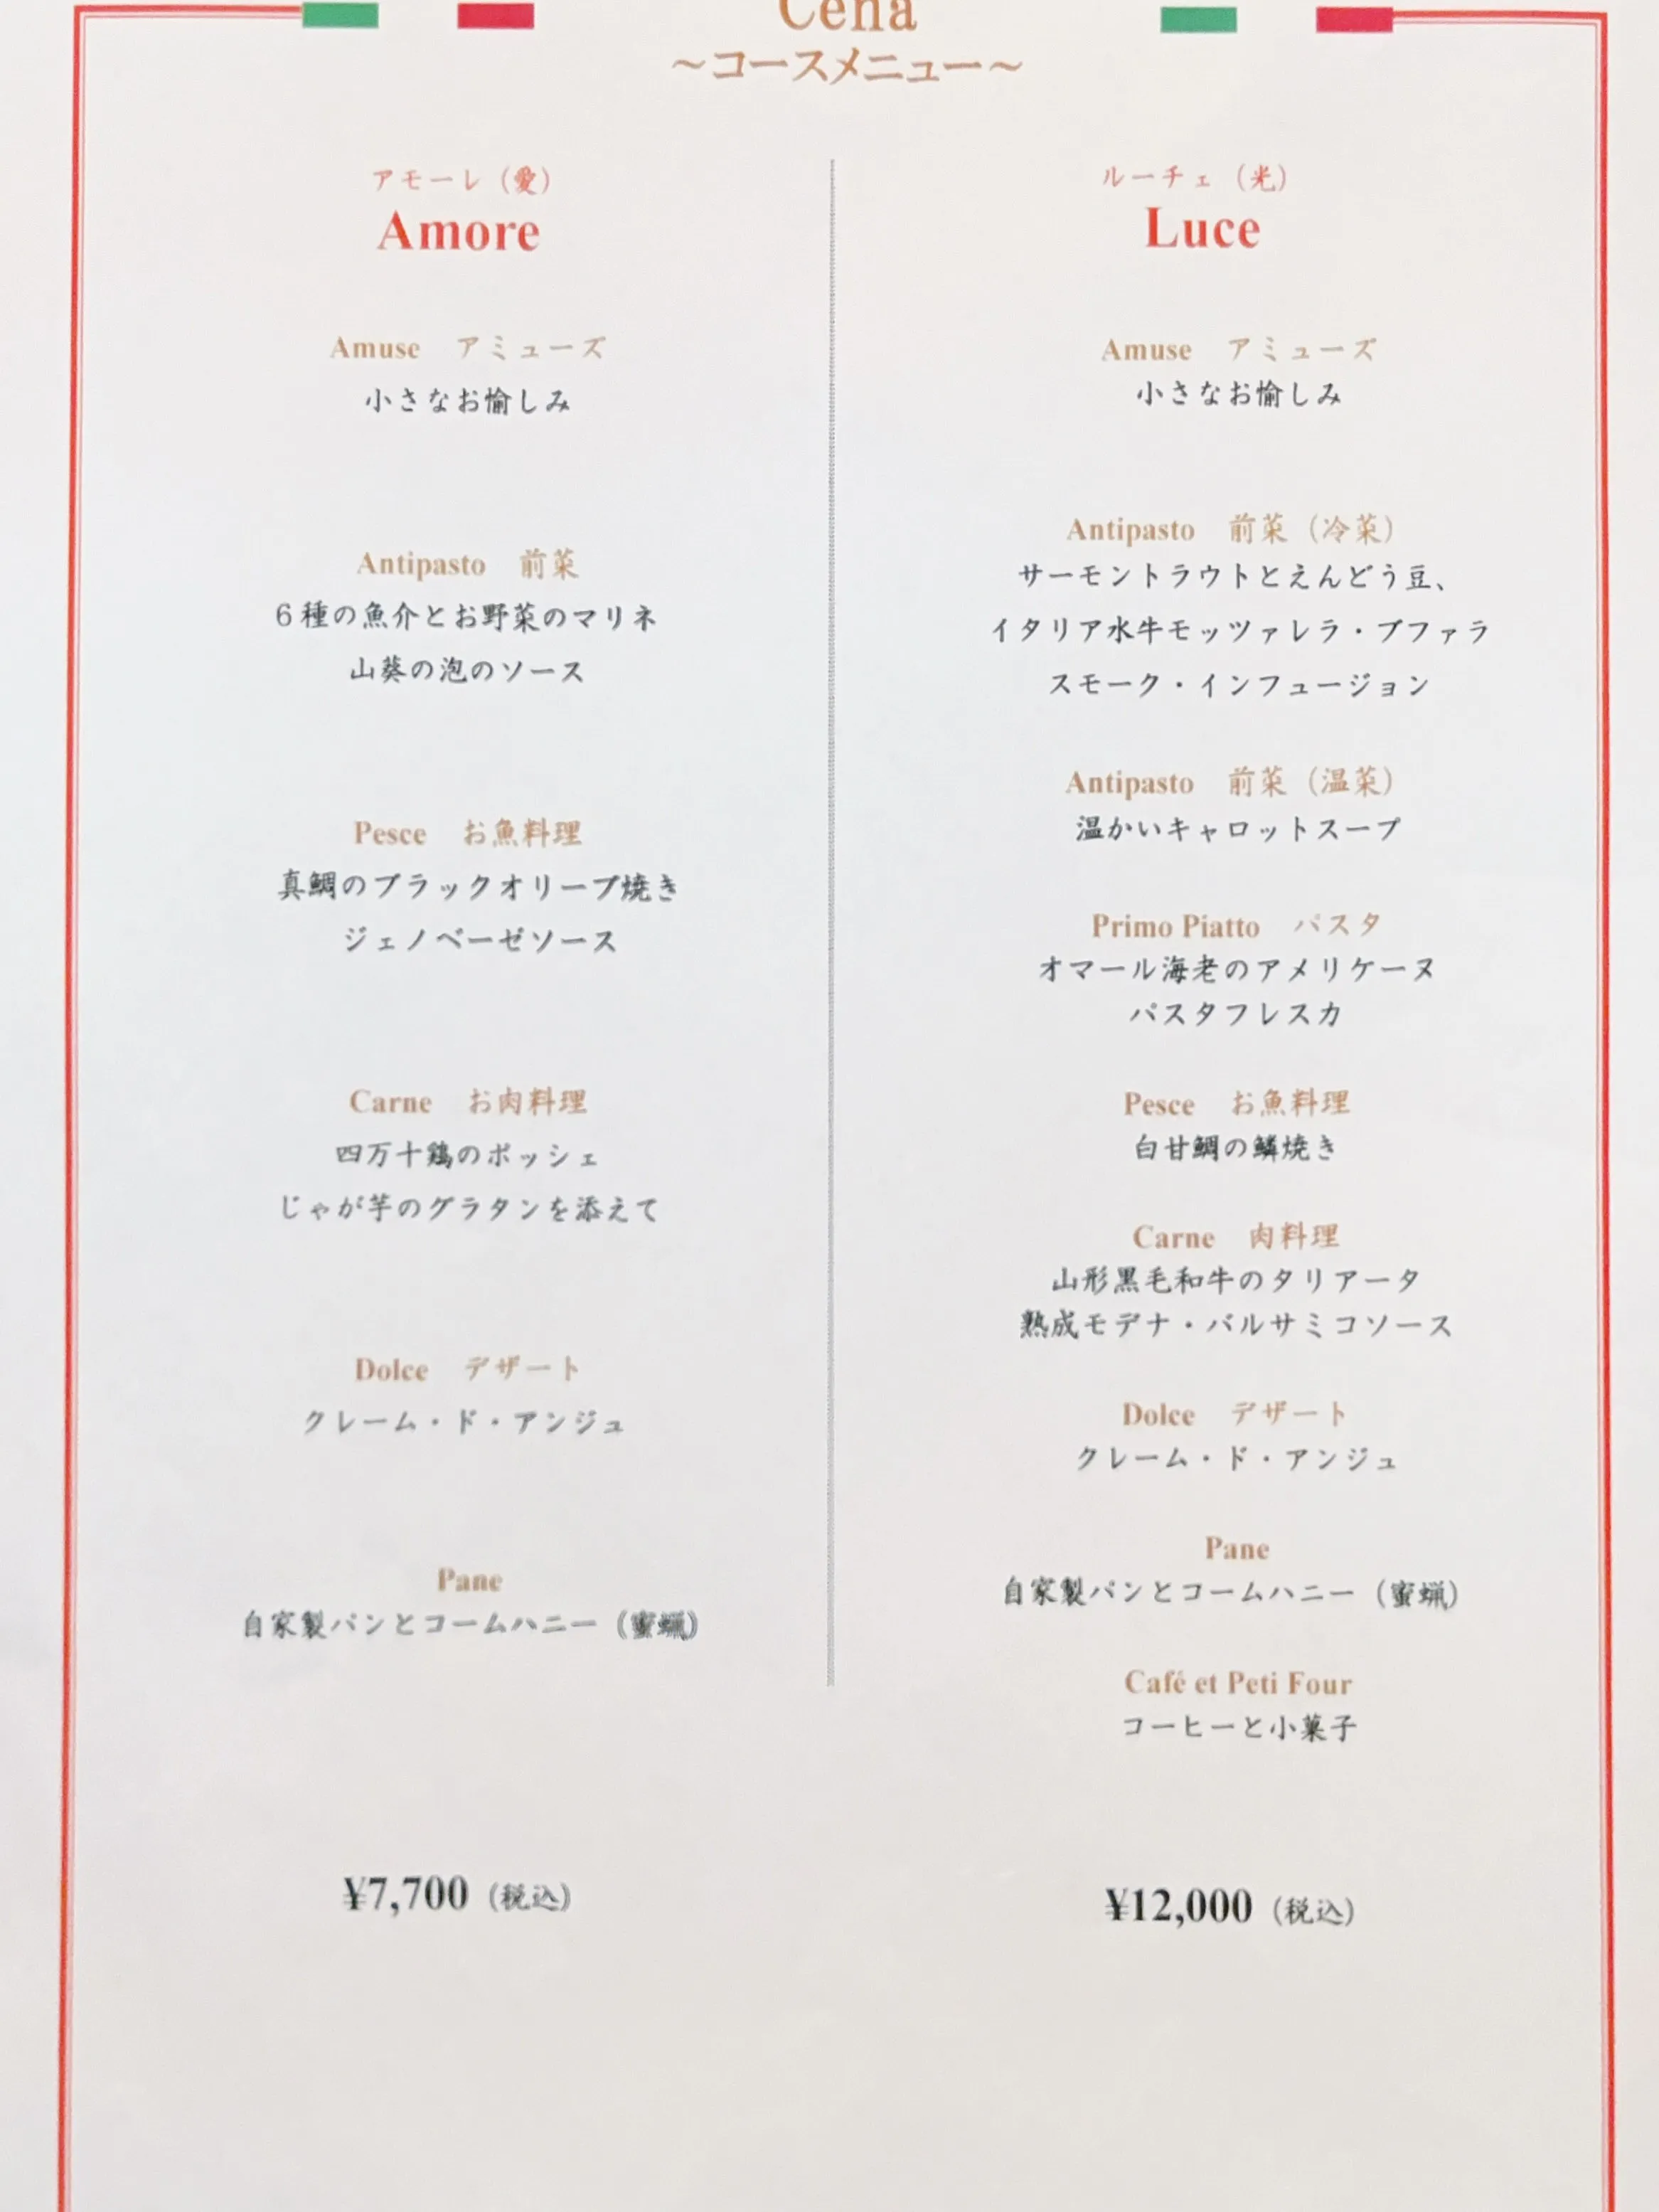 Cena
～コースメニュー～
アモーレ（愛）
Amore
Amuse　アミューズ
小さなお愉しみ
Antipasto　前菜
６種の魚介とお野菜のマリネ
山葵の泡のソース
Pesce　お魚料理
真鯛のブラックオリーブ焼き
ジェノベーゼソース
Carne　お肉料理
四万十鶏のポッシェ
じゃが芋のグラタンを添えて
Dolce　デザート
クレーム・ド・アンジュ
Pane
自家製パンとコームハニー（蜜蝋）
¥7,700（税込）
ルーチェ（光）
Luce
Amuse　アミューズ
小さなお愉しみ
Antipasto　前菜（冷菜）
サーモントラウトとえんどう豆、
イタリア水牛モッツァレラ・ブファラ
スモーク・インフュージョン
Antipasto　前菜（温菜）
温かいキャロットスープ
Primo Piatto　パスタ
オマール海老のアメリケーヌ
パスタフレスカ
Pesce　お魚料理
白甘鯛の鱗焼き
Carne　肉料理
山形黒毛和牛のタリアータ
熟成モデナ・バルサミコソース
Dolce　デザート
クレーム・ド・アンジュ
Pane
自家製パンとコームハニー（蜜蝋）
Café et Peti Four
コーヒーと小菓子
¥12,000（税込）